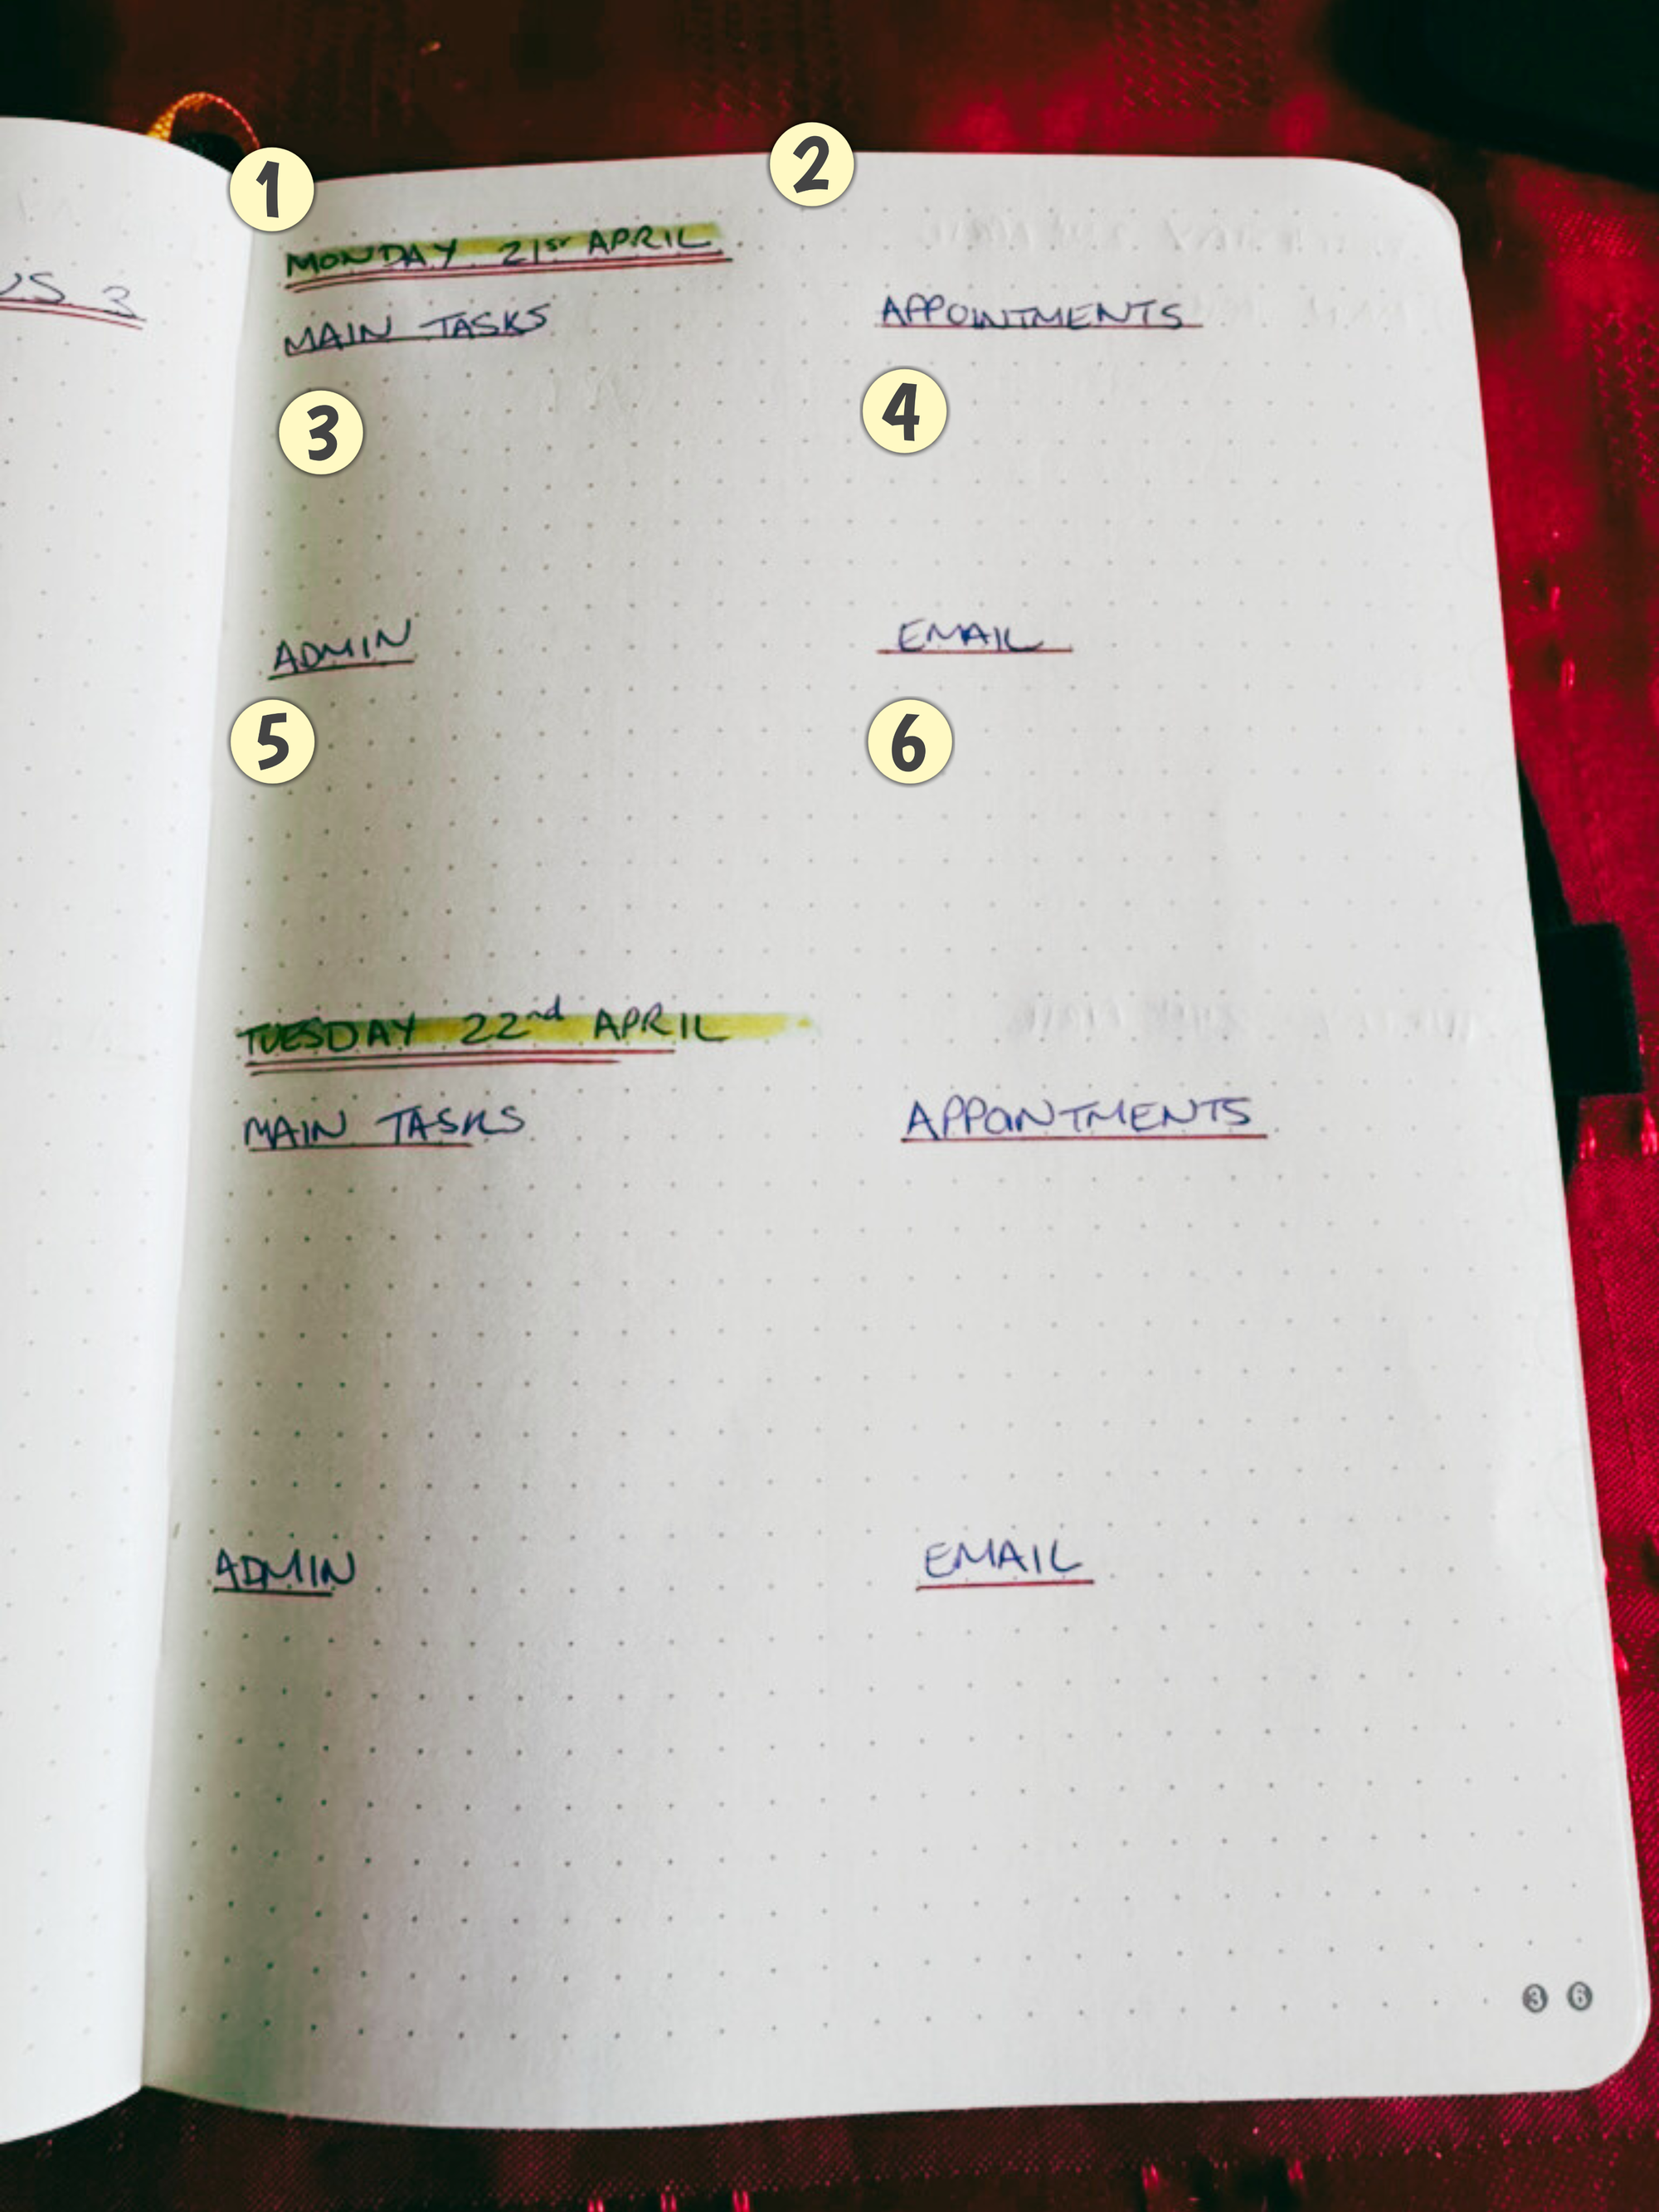 1
2
MONDAY 21st APRIL
MAIN TASKS APPOINTMENTS
3 4
ADMIN EMAIL
5 6
TUESDAY 22nd APRIL
MAIN TASKS APPOINTMENTS
ADMIN EMAIL
36